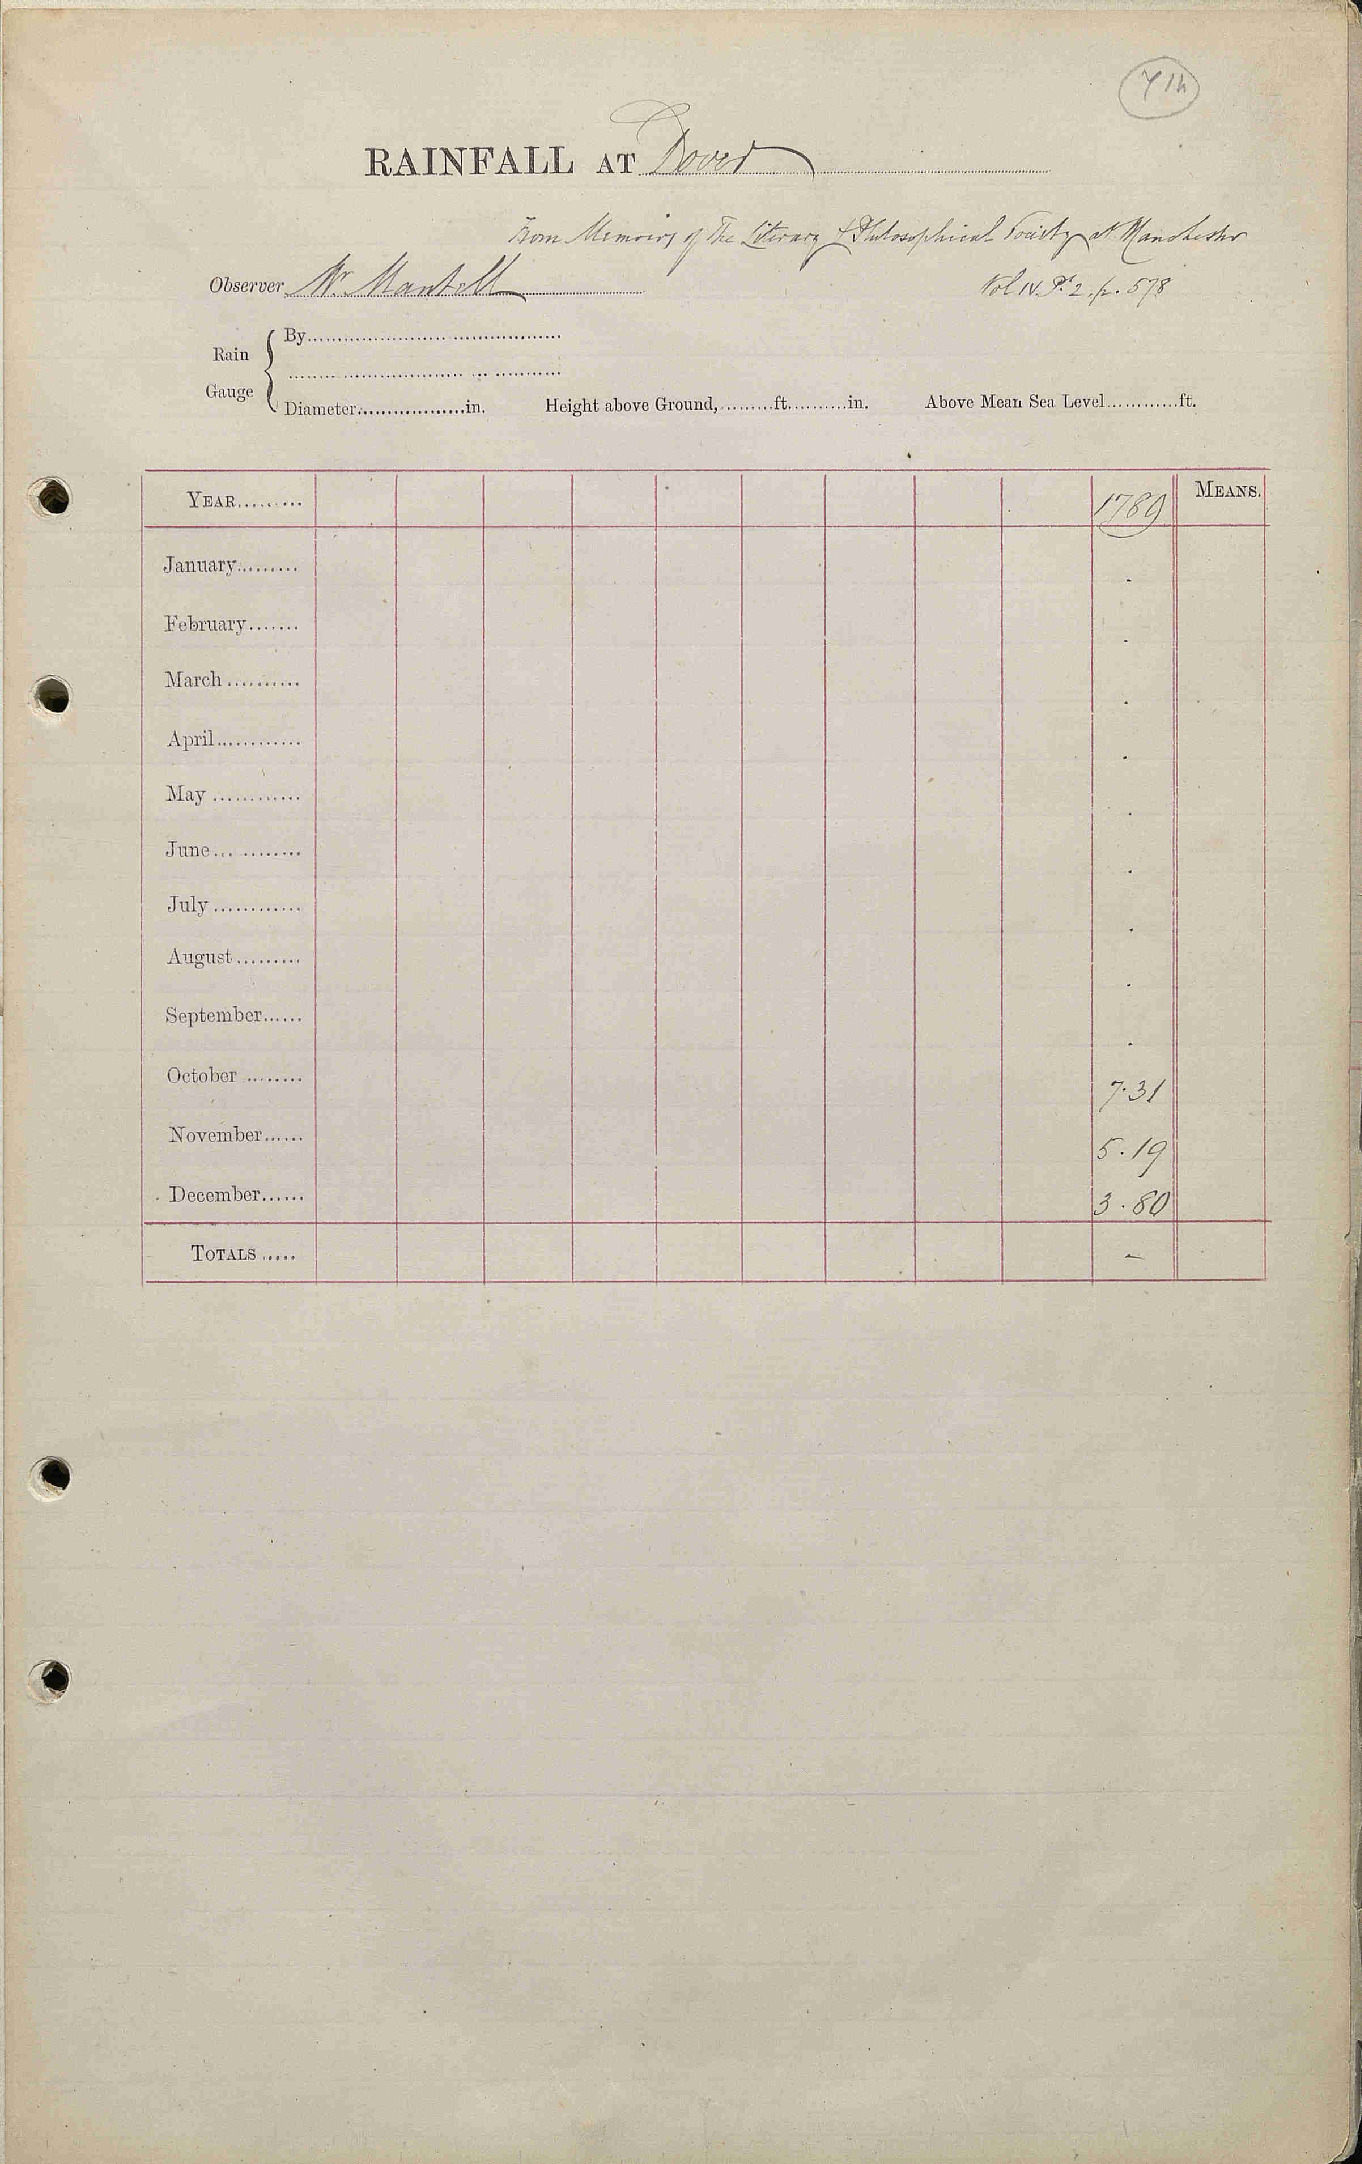 RAINFALL AT Dover
From Memoirs of The Literary & Philosophical Society at Manchester
Observer Mr Mantell Vol IV. Pt 2. p. 578
By
Rain
Gauge
Diameter in. Height above Ground, ft. in. Above Mean Sea Level ft.
YEAR 1789 MEANS.
January -
February -
March -
April -
May -
June -
July -
August -
September -
October 7.31
November 5.19
December 3.80
TOTALS -